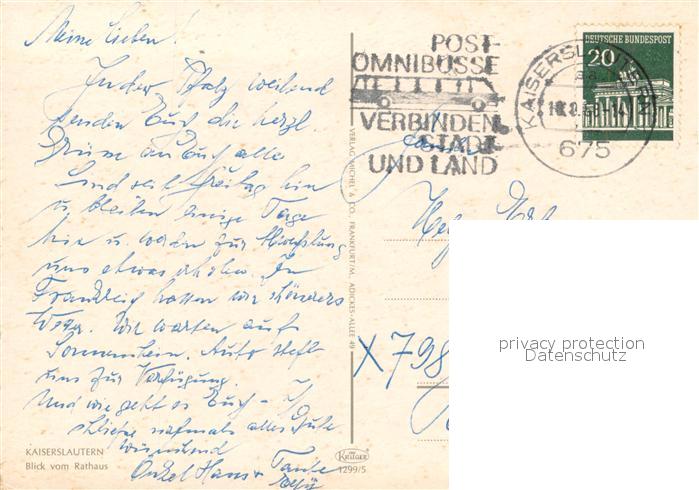 Meine Lieben!
In der Pfalz weilend
senden Euch die herzl.
Grüsse an Euch alle
Sind seit Freitag hier
u. bleiben einige Tage
hier u. wollen zur
uns etwas erholen. In
Frankreich hatten wir schönes
Wetter. Wir warten auf
Sonnenschein. Auto steht
uns zur Verfügung.
Und wie geht es Euch - Ich
schliesse nochmals alles Gute
wünschend
Onkel Hans + Tante
KAISERSLAUTERN
Blick vom Rathaus
VERLAG MICHEL & CO., FRANKFURT/M. ADICKES-ALLEE 49
KRÜGER
1299/5
POST-
OMNIBUSSE
VERBINDEN
STADT
UND LAND
KAISERSLAUTERN
675
DEUTSCHE BUNDESPOST
20
X 798
privacy protection
Datenschutz